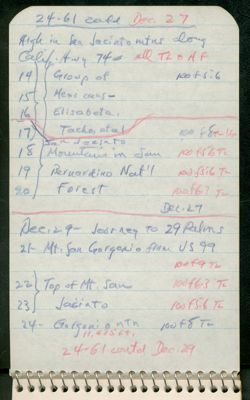 24-61 contd Dec. 27
High in San Jacinto mtns along
Calif. Hwy 74 - all T2 @ A F
14 Group of 100 f5.6
15 Mexicans -
16 Elisabeta,
17 Tacho, et al 100 f8
San Jacinto
18 Mountains in San 100 f5.6 T2
19 Bernardino Nat'l 100 f5.6 T2
20 Forest 100 f6.3 T2
Dec. 27
Dec. 29 - Journey to 29 Palms
21- Mt. San Gorgonio from US 99
100 f9 T2
22 Top of Mt. San 100 f6.3 T2
23 Jacinto 100 f5.6 T2
24- Gorgonio mtn 100 f8 T2
11,485 ft.
24-61 contd Dec. 29